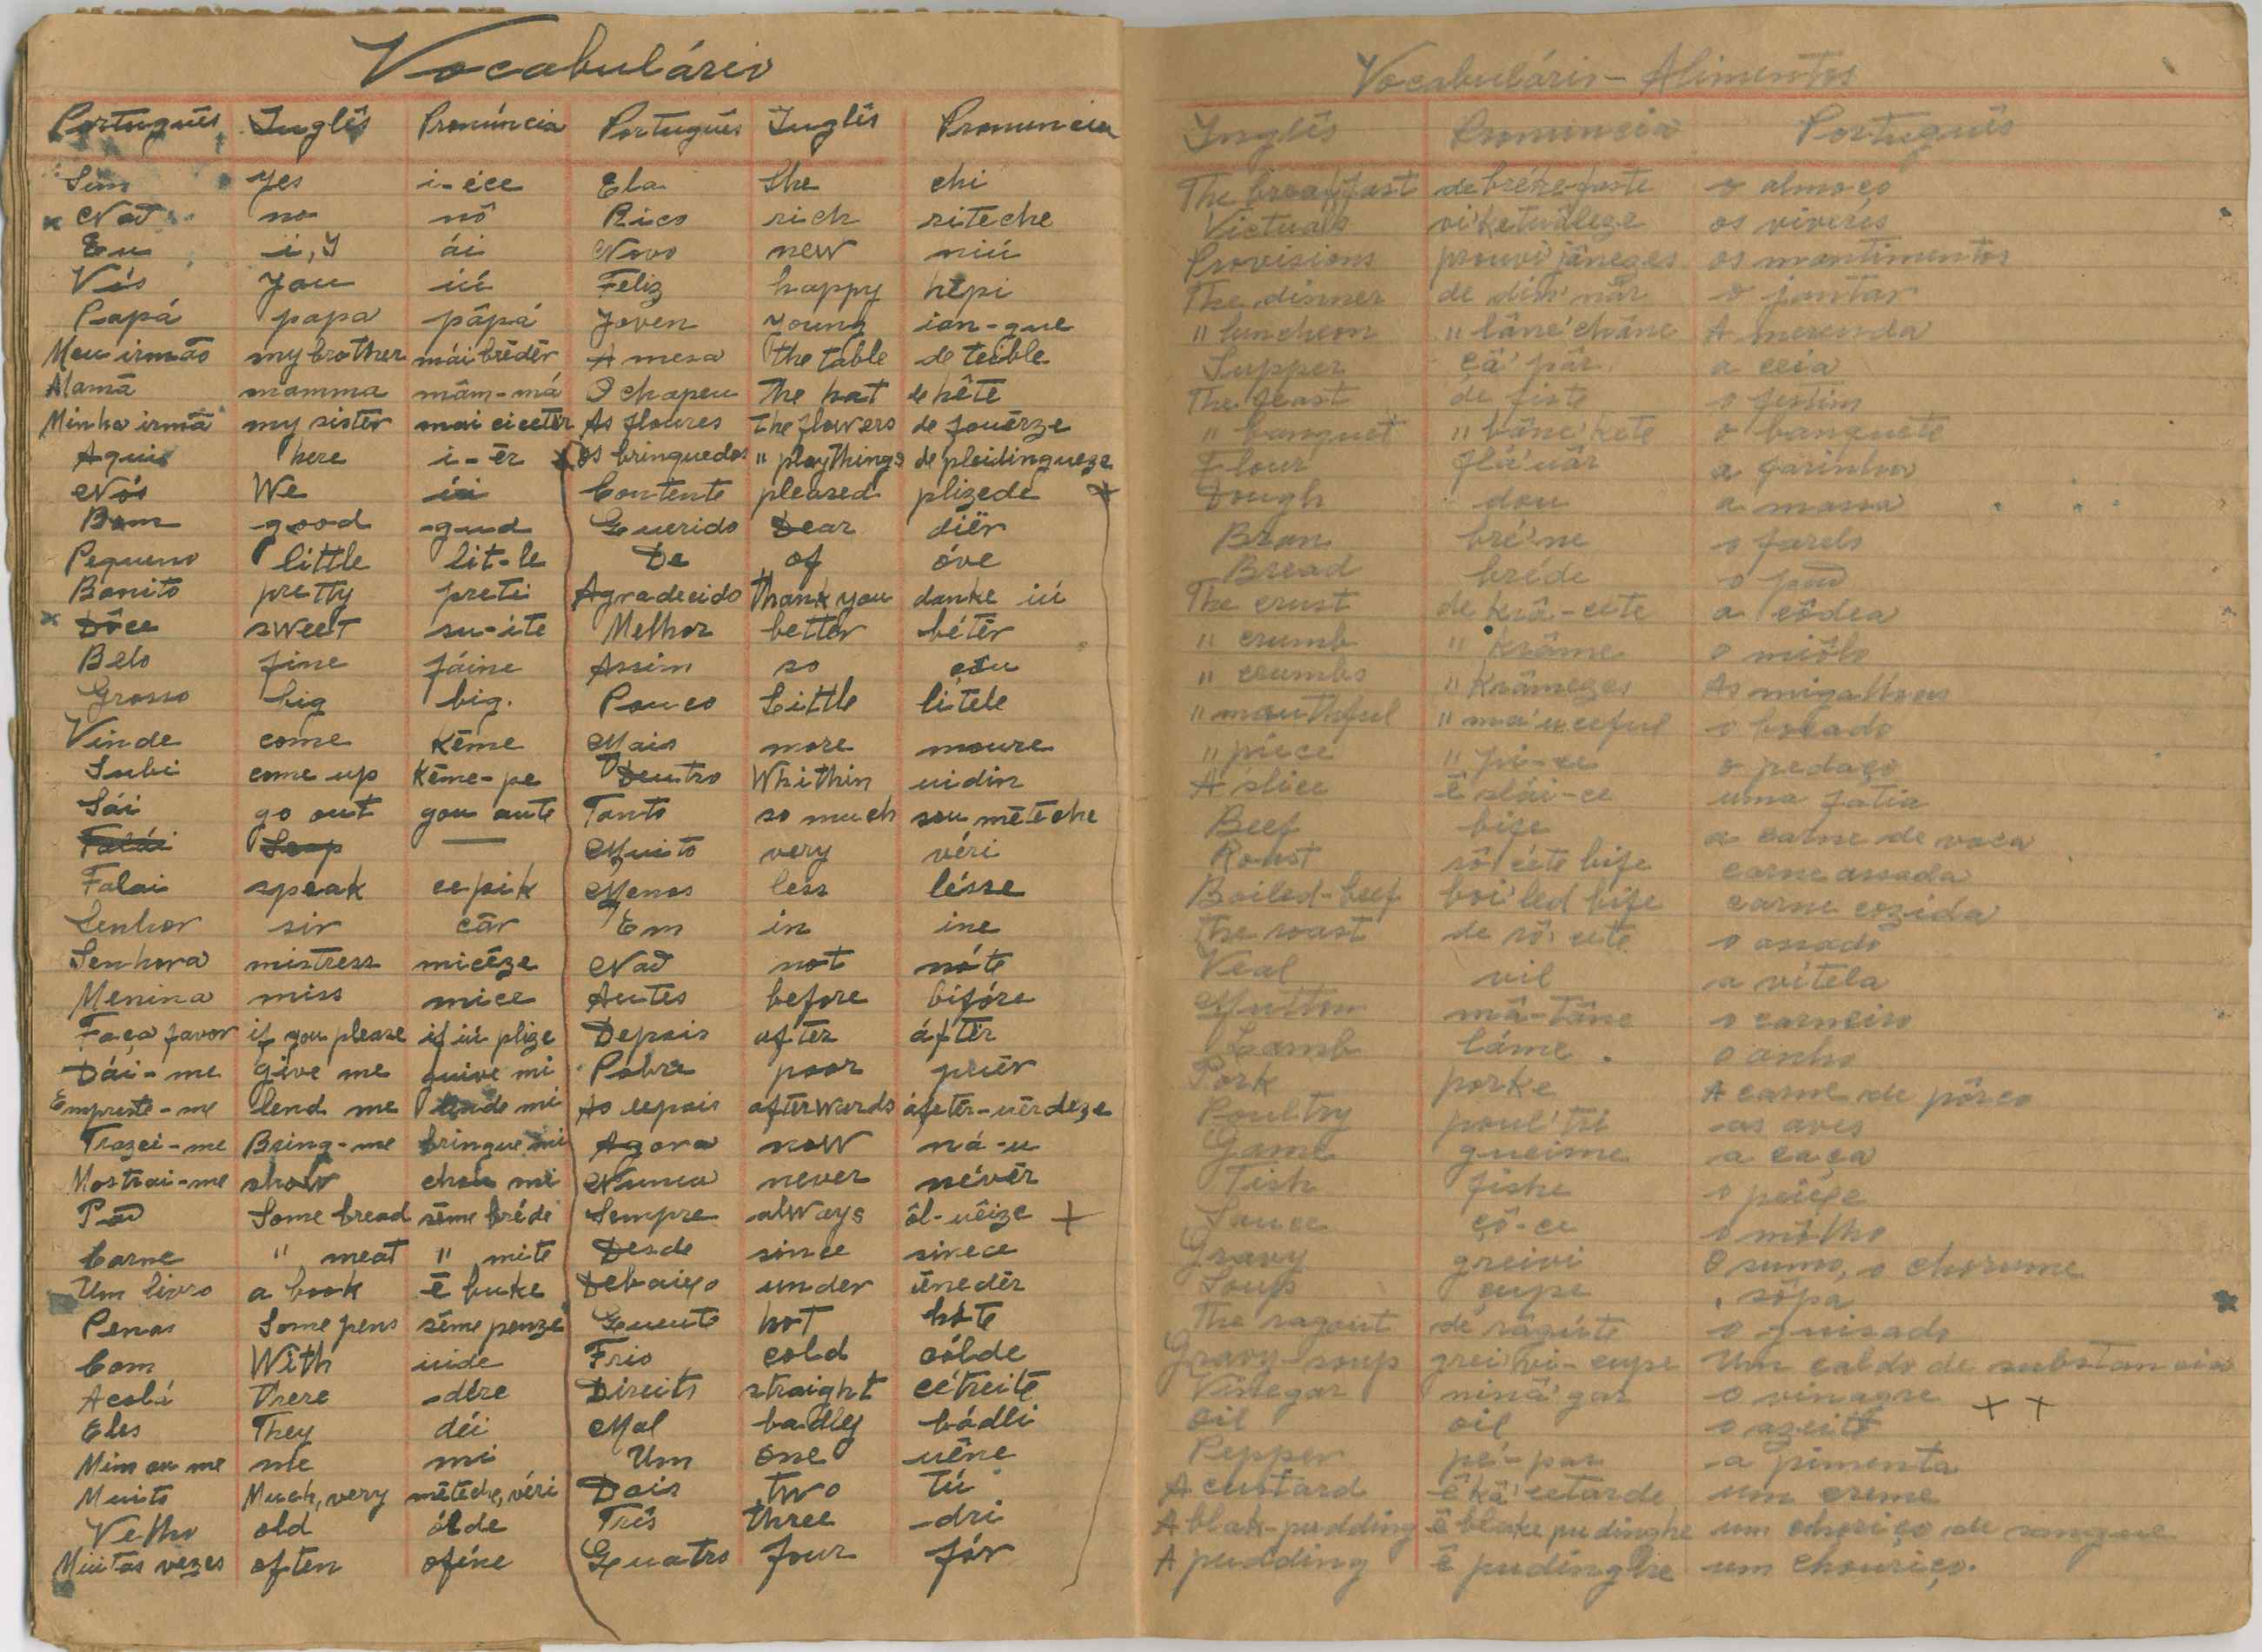 Vocabulário
Português Inglês Pronúncia Português Inglês Pronuncia
Sim yes i-éce Ela she chi
Não no nô Rico rich riteche
Eu i, I ái Novo new niú
Vós you iú Feliz happy hépi
Papá papa pâpá Joven young ian-gue
Meu irmão my brother mái brēdēr A mesa the table de teible
Mamã mamma mâm-má O chapeu The hat de hête
Minha irmã my sister mai cicetēr As floures the flowers de fouērze
Aqui here i-ēr Os brinquedos " playthings de pleidingueze
Nós We úi Contente pleased plizede
Bom good gud Querido Dear diēr
Pequeno little lit-le De of óve
Bonito pretty preti Agradecido thank you danke iú
Dôce sweet su-ite Melhor better bétēr
Belo fine fáine Assim so çou
Grosso big big. Pouco Little litele
Vinde come Kēme Mais more moure
Subi come up Kēme-pe Dentro Whithin uidin
Sái go out gou aute Tanto so much sou mēteche
Falái Muito very véri
Falai speak cepik Menos less lésse
Senhor sir cār Em in ine
Senhora mistress micēze Não not nóte
Menina miss mice Antes before bifóre
Faça favor if you please if iú plize Depois after áftēr
Dái-me give me guive mi Pobre poor puēr
Empreste-me lend me lende mi Ao depois afterwards áfetēr-uērdeze
Trazei-me Bring-me bringue mi Agora now ná-u
Mostrai-me show chou mi Nunca never névēr
Pão Some bread sēme bréde Sempre always ôl-uêize
Carne " meat " mite Desde since sinece
Um livro a book ē buke Debaixo under ēnedēr
Penas Some pens sēme penze Quente hot hóte
Com With uide Frio cold cólde
Acolá there dére Direito straight cétreite
Eles They déi Mal badly bádli
Mim ou me me mi Um one uēne
Muito Much, very mēteche, véri Dois two tú
Velho old ólde Três three dri
Muitas vezes often ofine Quatro four fór
Vocabulário - Alimentos
Inglês Pronuncia Português
The breakfast de bréke-faste o almoço
Victuals vi'ketuâleze os viveres
Provisions prouvi'jâneges os mantimentos
The dinner de din'nâr o jantar
" luncheon " lâne'châne A merenda
Supper çâ'pâr a ceia
The feast de fiste o festim
" banquet " bâne'kete o banquete
Flour flá'uâr a farinha
Dough dou a massa
Bran bré'ne o farelo
Bread bréde o pão
The crust de krâ-cete a côdea
" crumb " krâme o miôlo
" crumbs " krâmeges As migalhas
" mouthful " má'uceful o bocado
" piece " pi-ce o pedaço
A slice ē slái-ce uma fatia
Beef bife a carne de vaca
Roast rô'cete bife carne assada
Boiled-beef boi'led bife carne cozida
The roast de rô'cete o assado
Veal vil a vitela
Mutton mâ-tâne o carneiro
Lamb láme. o anho
Pork porke A carne de pôrco
Poultry poul'tri as aves
Game gueime a caça
Fish fishe o peixe
Sauce çô-ce o môlho
Gravy greivi O sumo, o chorume
Soup çupe sôpa
The ragout de râgúte o guisado
Gravy-soup greivi-cupe Um caldo de substancia
Vinegar ninâ'gar o vinagre
Oil oil o azeite
Pepper pé-par a pimenta
A custard ē kâ'cetarde um creme
A blak-pudding ē blake pudinghe um choriço de sangue
A pudding ē pudinghe um chouriço.